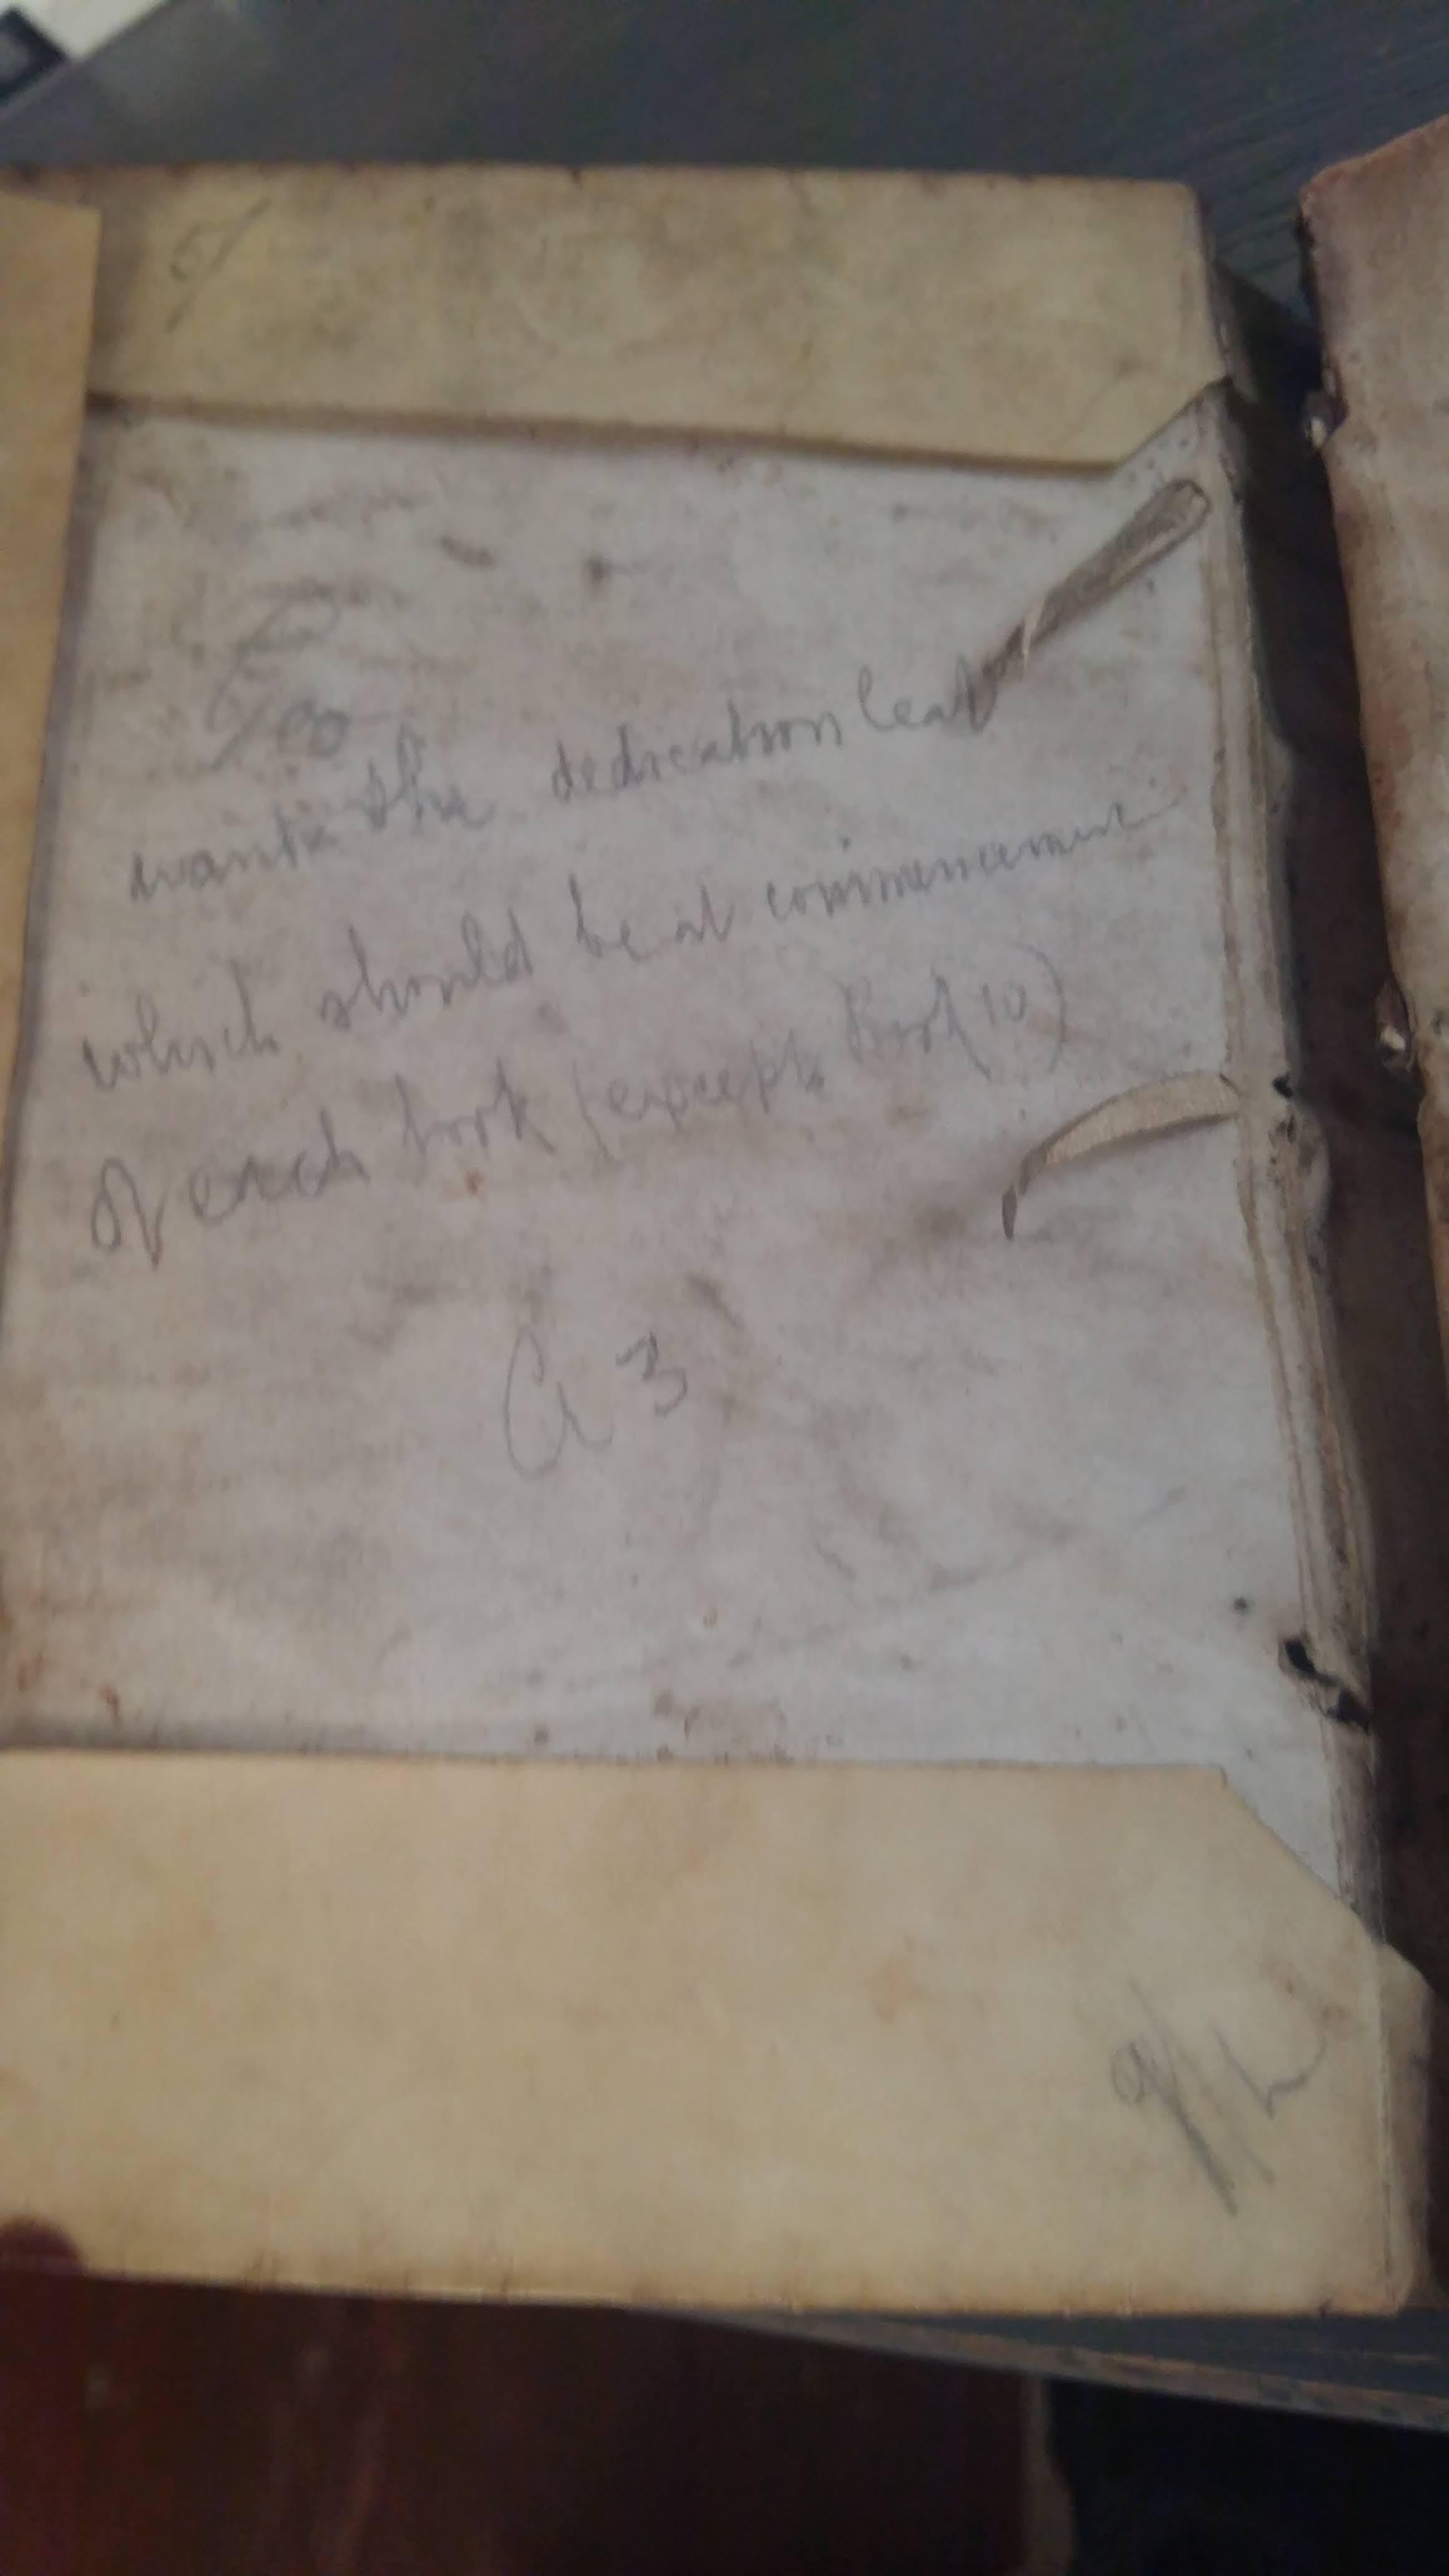 wants the dedication leaf
which should be at commencement
of each book (except Book 10)
a 3